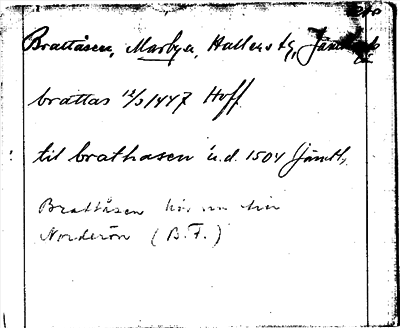 Brattåsen, Marby s, Hallens tg, Jämtl
brattas 12/3 1447 Hoff
til brathasen u.d. 1504 Jämtl,
Brattåsen hör nu till
Norderön (B.F.)